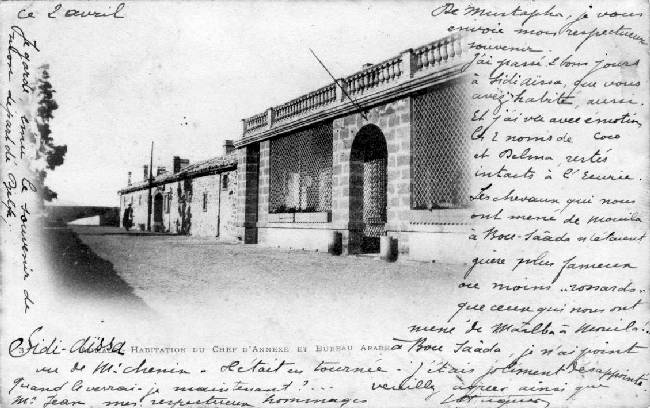 ce 2 avril
De Mustapha, je vous
envoie mon respectueux
souvenir.
J'ai passé 2 bons jours
à Sidi Aïssa, que vous
avez habité, aussi.
Et j'ai vu avec émotion
les 2 noms de Coco
et Delma restés
intacts à l'écurie.
Les chevaux qui nous
ont mené de
à Bou-Sâada n'étaient
guère plus fameux
ou moins "rossards"
que ceux qui nous ont
mené de à
Sidi-Aïssa Habitation du Chef d'Annexe et Bureau Arabe
à Bou Saâda, je n'ai point
vu de Mr Chenin. Il était en tournée. J'étais joliment désappointé.
Quand le verrai-je maintenant ?... veuillez agréer ainsi que
Mr Jean mes respectueux hommages
Je garde ému le souvenir de
votre départ de